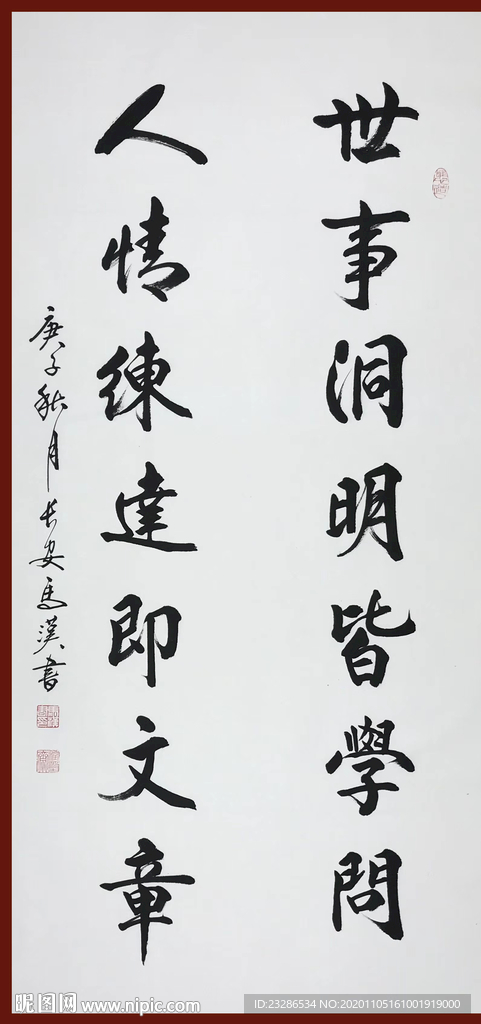 世事洞明皆學問
人情練達即文章
庚子秋月長安馬漢書
昵图网 www.nipic.com
ID:23286534 NO:20201105161001919000